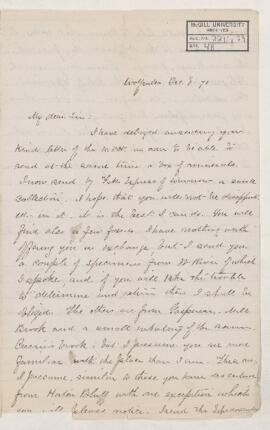 McGILL UNIVERSITY
ARCHIVES
ACC. NO.
REF. 48
Wolfville Oct. 8. 70
My dear Sir:
I have delayed answering your
kind letter of the in order to be able to
send at the same time a box of minerals.
I now send by Express of tomorrow a small
collection. I hope that you will not be disappoint-
ed in it. it is the best I can do. You will
find also a few fossils. I have nothing worth
offering you in exchange, but I send you
a couple of specimens from River of which
I spoke, and if you will take the trouble
to determine and return them I shall be
obliged. The others are from Gaspereau, Mill
Brook and a small of the same,
Brook: but I presume you are more
familiar with the place than I am. These are,
I presume, similar to those you have
from Horton Bluff with one exception which
you will notice. I send the